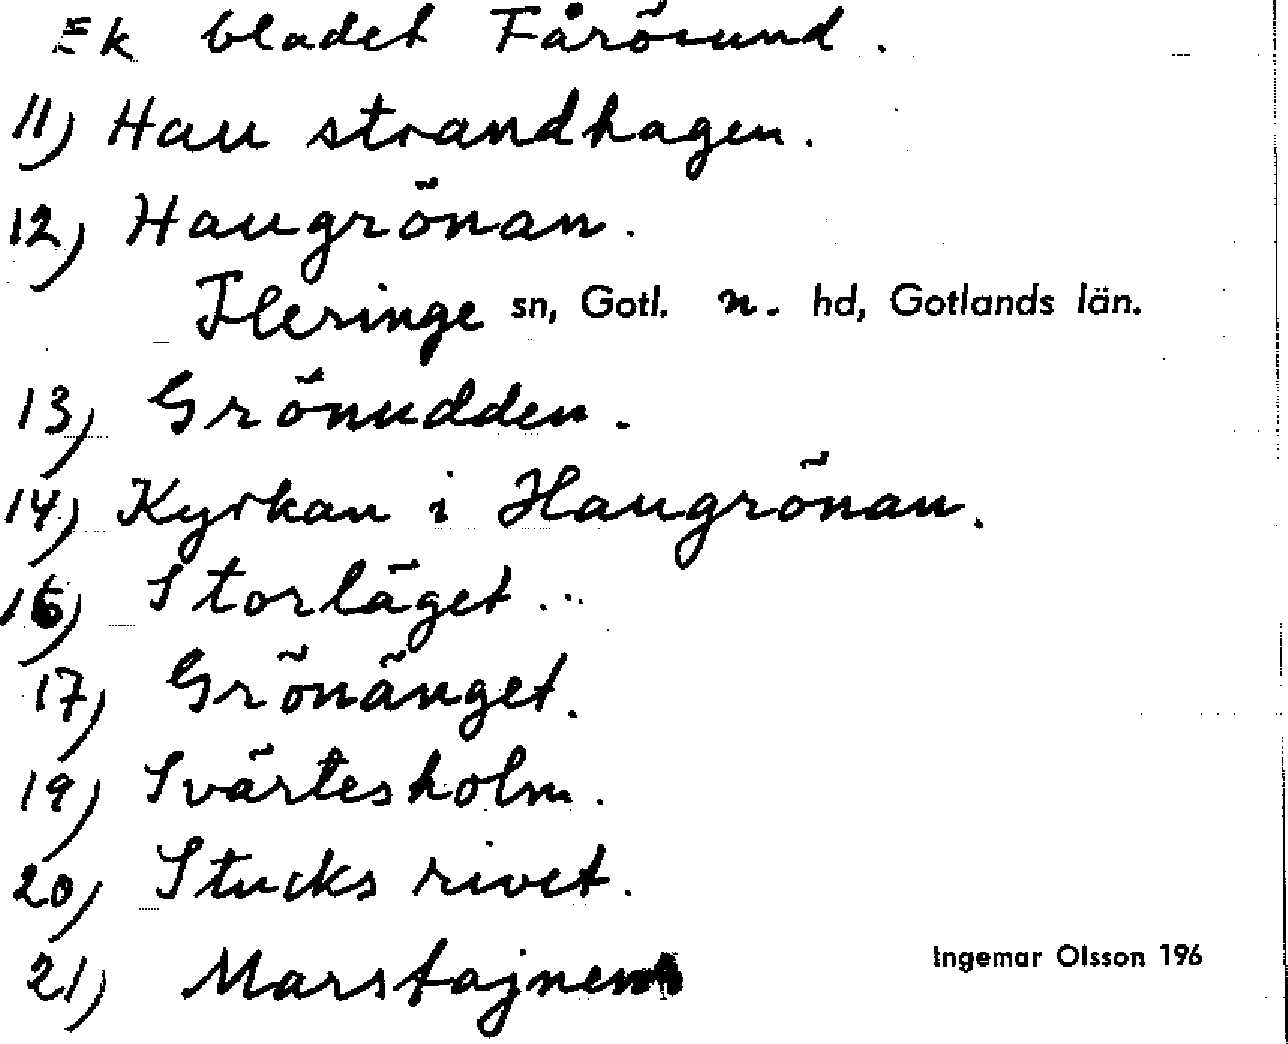 Ek bladet Fårösund.
11) Hau strandhagen.
12) Haugrönan.
Fleringe sn, Gotl. n. hd, Gotlands län.
13) Grönudden.
14) Kyrkan i Haugrönan.
16) Storläget...
17) Grönänget.
19) Svärtesholm.
20) Stucks rivet.
21) Marstajnen
Ingemar Olsson 196